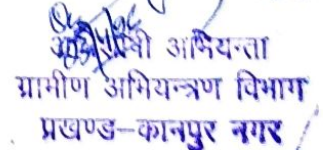 अधिशासी अभियन्ता
ग्रामीण अभियन्त्रण विभाग
प्रखण्ड-कानपुर नगर